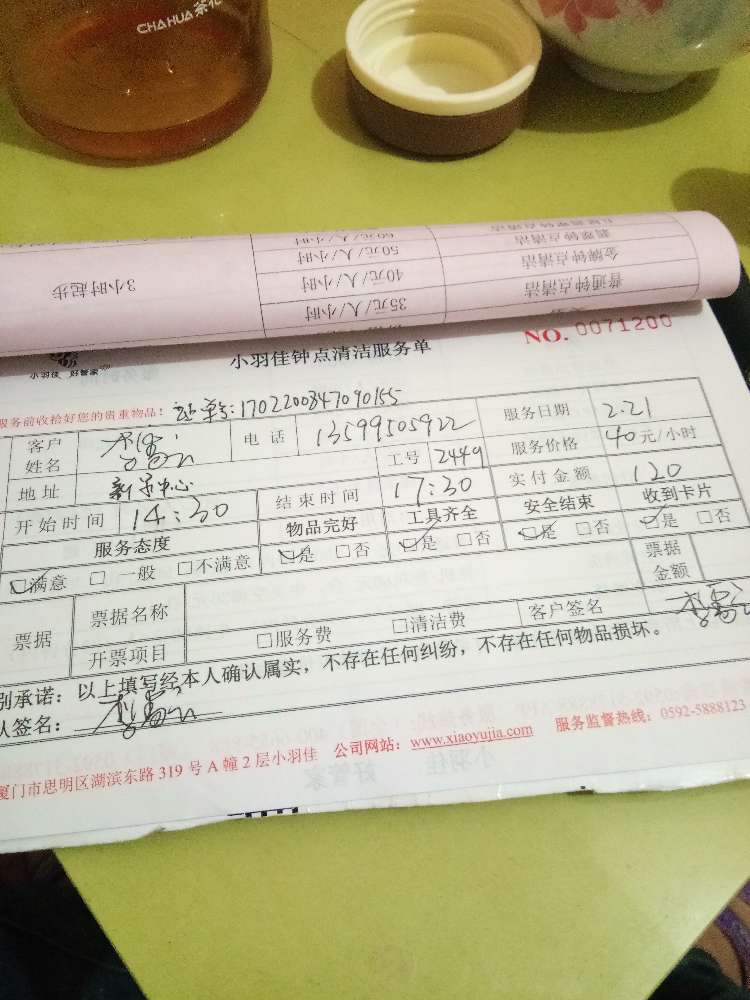 CHAHUA 茶花
翡翠钟点清洁 60元/人/小时
金牌钟点清洁 50元/人/小时
普通钟点清洁 40元/人/小时 3小时起步
35元/人/小时
小羽佳 好管家
小羽佳钟点清洁服务单
NO. 0071200
服务前收拾好您的贵重物品!
单号:1702200847090155
客户姓名 电话 13599505922 服务日期 2.21
地址 中心 工号 2449 服务价格 40元/小时
开始时间 14:30 结束时间 17:30 实付金额 120
服务态度 物品完好 工具齐全 安全结束 收到卡片
☑满意 □一般 □不满意 ☑是 □否 ☑是 □否 ☑是 □否 ☑是 □否
票据 票据名称 票据金额
开票项目 □服务费 □清洁费 客户签名
别承诺:以上填写经本人确认属实,不存在任何纠纷,不存在任何物品损坏。
人签名:
厦门市思明区湖滨东路319号A幢2层小羽佳 公司网站:www.xiaoyujia.com 服务监督热线:0592-5888123